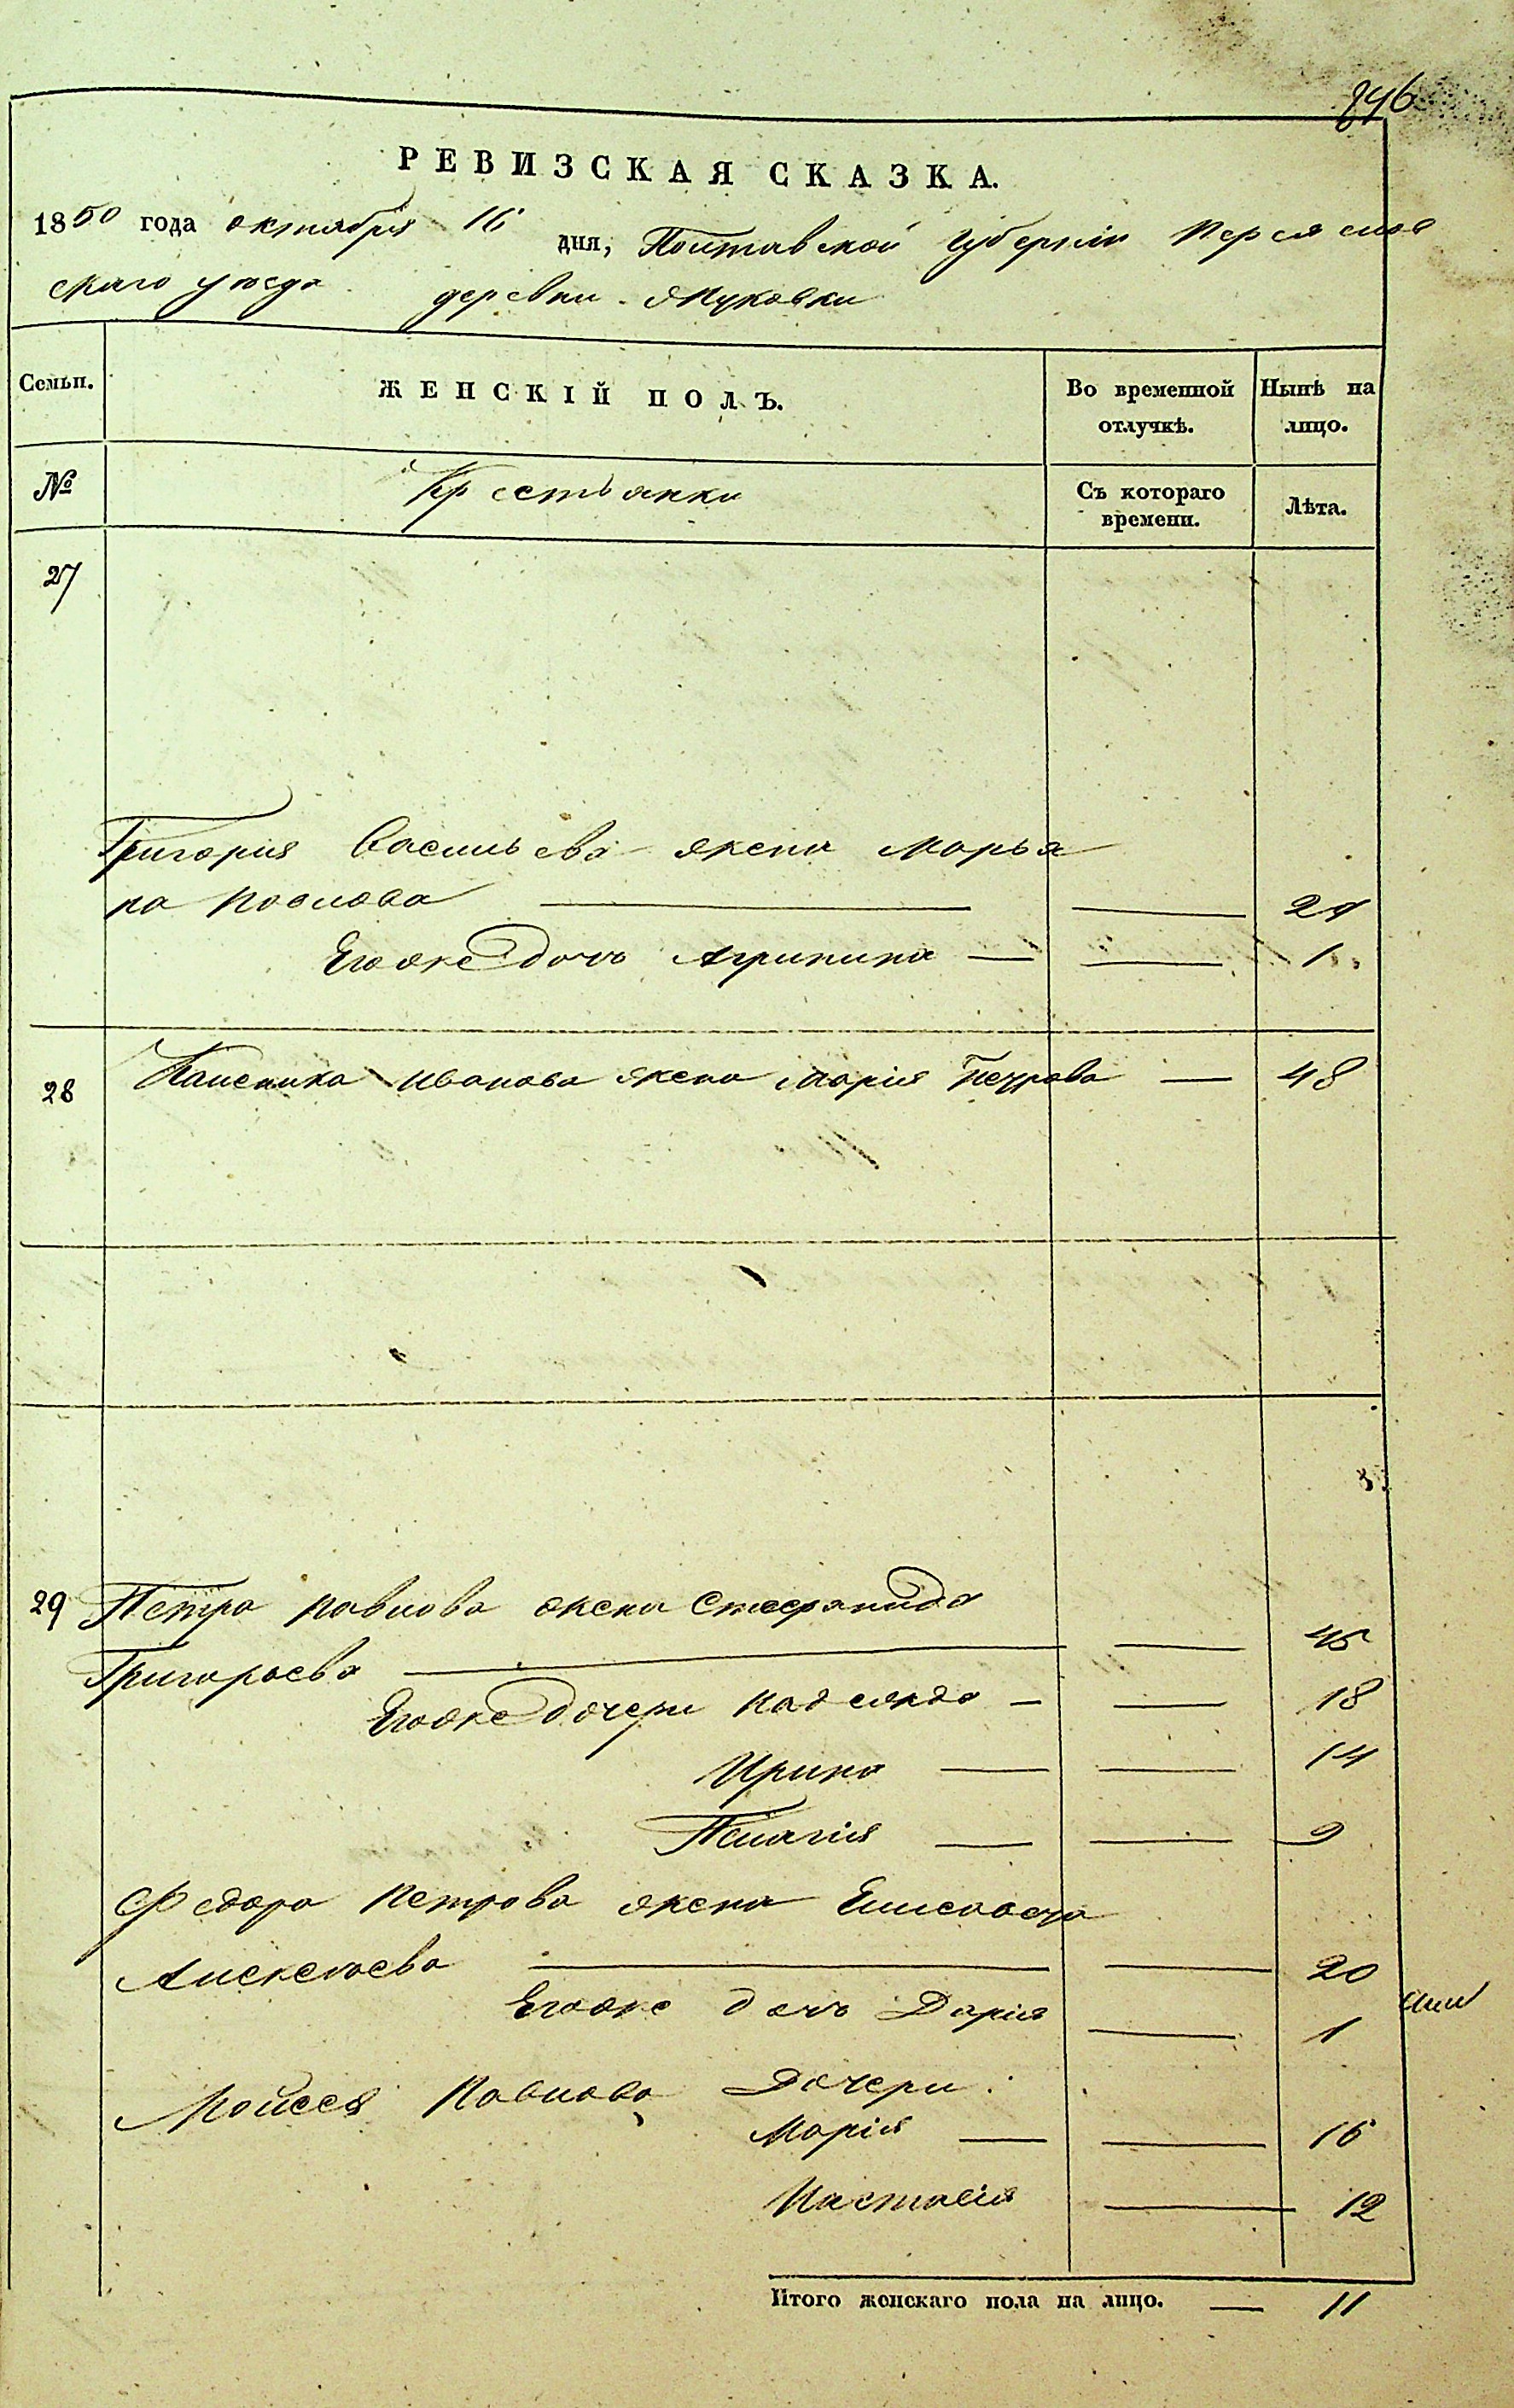 846
РЕВИЗСКАЯ СКАЗКА.
1850 года октября 16 дня, Полтавской Губерніи Переяслов
скаго уезда деревни Яцковки
Семьи. ЖЕНСКІЙ ПОЛЪ. Во временной отлучкѣ. Нынѣ на лицо.
№ Крестьянки Съ котораго времени. Лѣта.
27
Григория Васильева жена Марья
на Павлова 24
Егоже дочь Агрипина 1
28 Иванова жена Марія Петрова 48
29 Петра Павлова жена Стефанида
Григорьева 45
Егоже дочери Надежда 18
Ирина 14
Пелагія 9
Федора Петрова жена Елисавета
Алексеева 20
Егоже дочь Дарія 1
Мойсея Павлова Дочери:
Марія 16
Настасія 12
Итого женскаго пола на лицо. 11